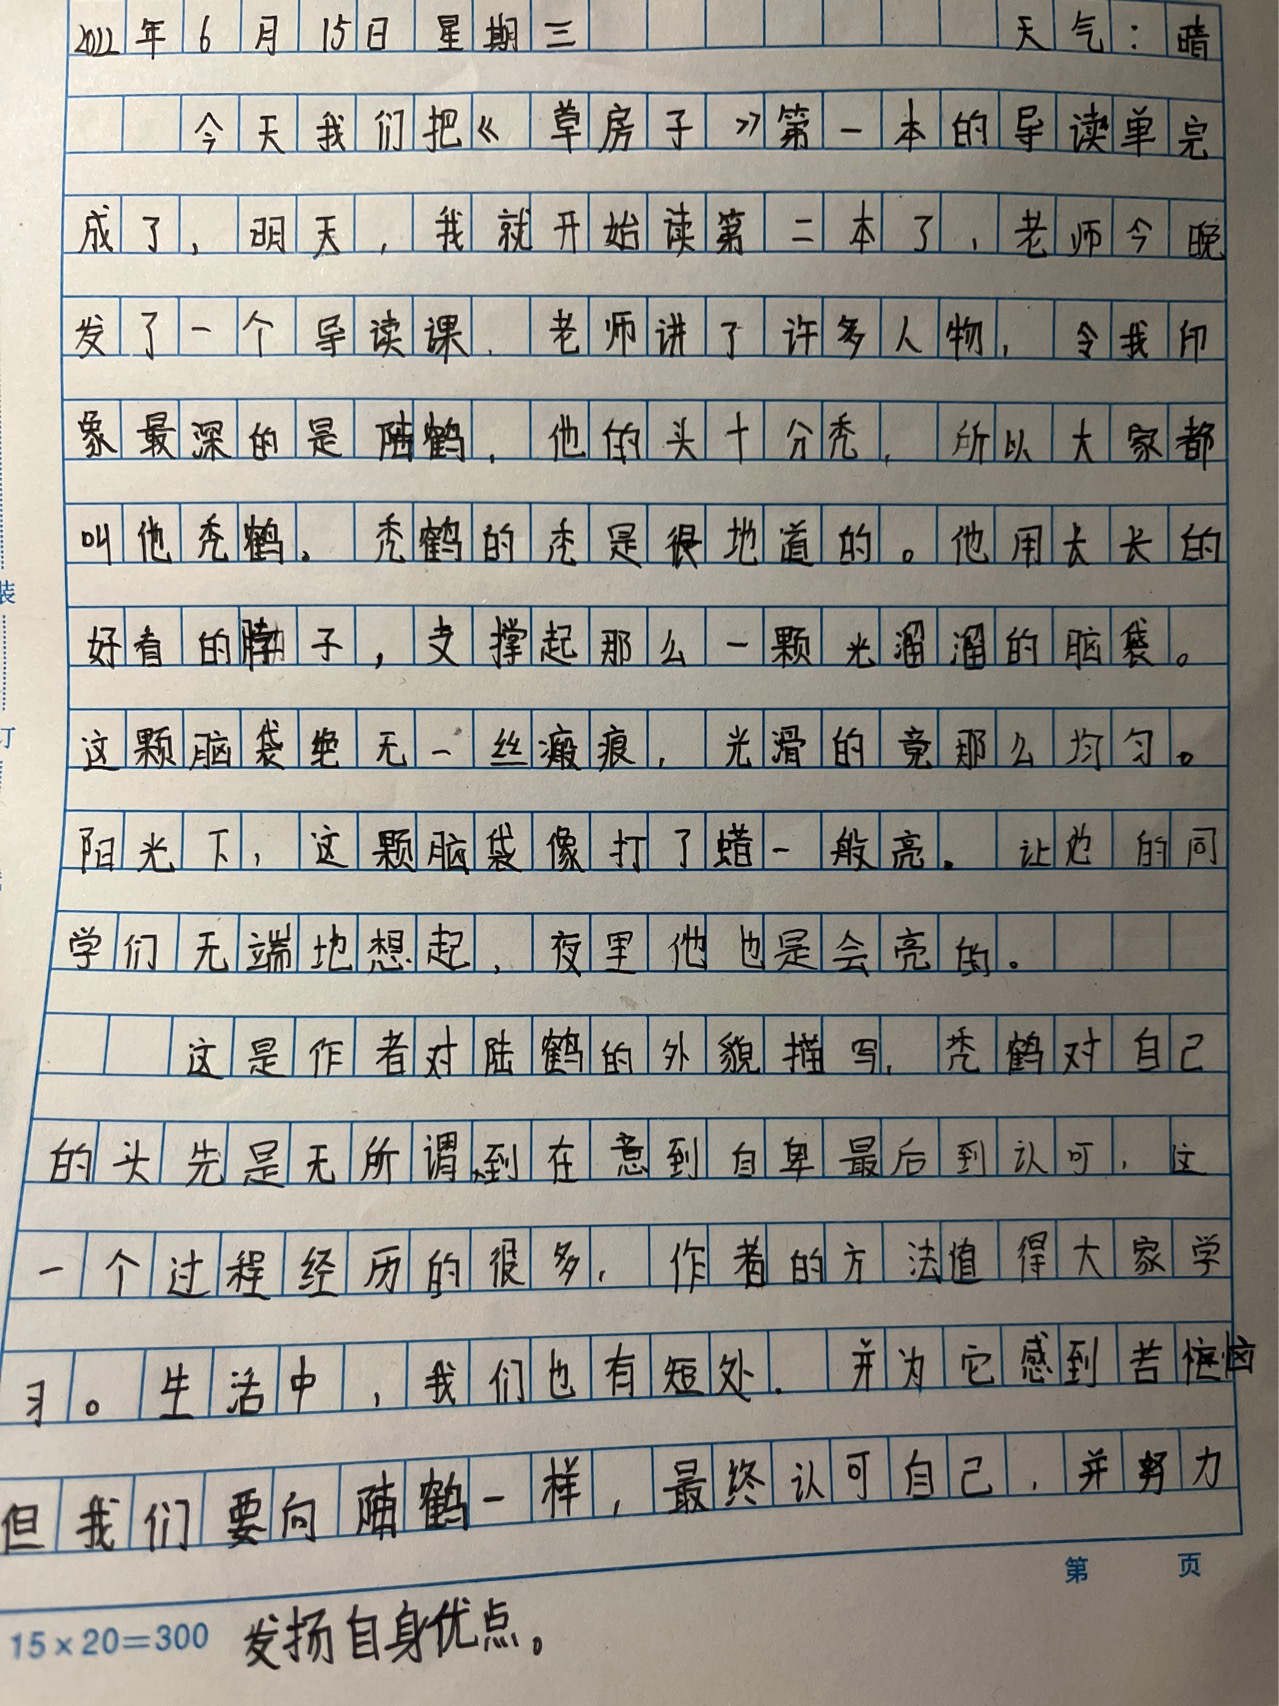 2022年6月15日 星期三 天气：晴
今天我们把《草房子》第一本的导读单完
成了，明天，我就开始读第二本了，老师今晚
发了一个导读课．老师讲了许多人物，令我印
象最深的是陆鹤．他的头十分秃，所以大家都
叫他秃鹤．秃鹤的秃是很地道的。他用长长的
好看的脖子，支撑起那么一颗光溜溜的脑袋。
这颗脑袋绝无一丝瘢痕，光滑的竟那么均匀。
阳光下，这颗脑袋像打了蜡一般亮．让他的同
学们无端地想起，夜里他也是会亮的。
这是作者对陆鹤的外貌描写，秃鹤对自己
的头先是无所谓到在意到自卑最后到认可，这
一个过程经历的很多，作者的方法值得大家学
习。生活中，我们也有短处．并为它感到苦恼
但我们要向陆鹤一样，最终认可自己，并努力
第 页
15×20=300 发扬自身优点。
装
订